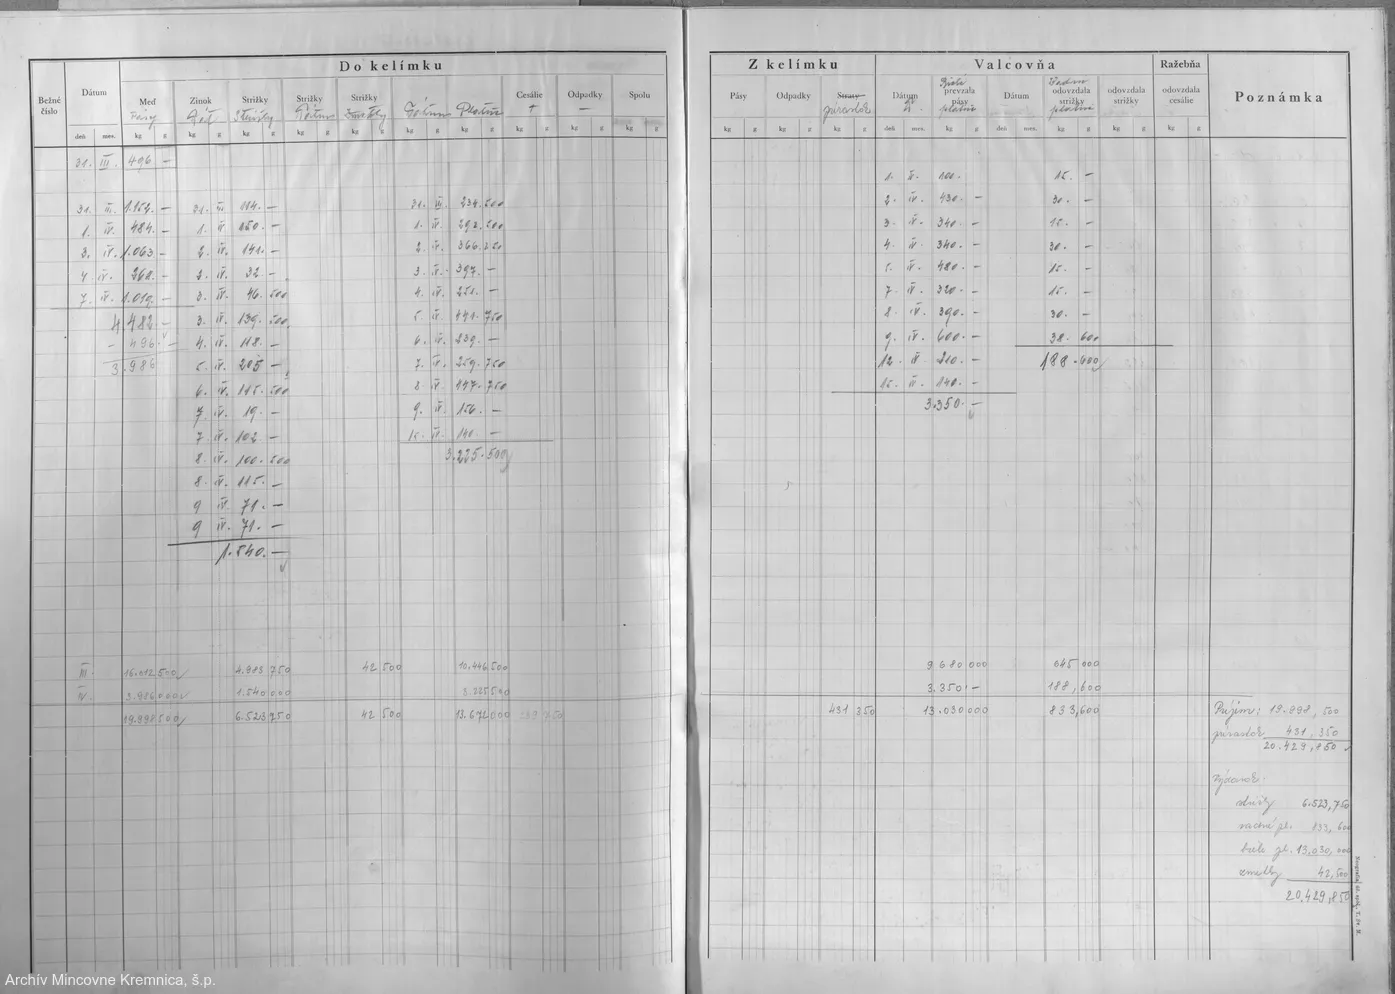 Do kelímku
Bežné číslo
Dátum
Meď
Zinok
Strižky
Strižky
Strižky
Cesálie
Odpadky
Spolu
Pásy
deň mes. kg g kg g kg g kg g kg g kg g kg g kg g kg g kg g
31. III. 496 —
31. III. 1.152. — 31. III 114. — 31. III. 234.500
1. IV. 484. — 1. IV. 150. — 1. IV. 292.500
3. IV. 1.063 — 2. IV. 141. — 2. IV. 366.250
4 IV. 260. — 2. IV. 32. — 3. IV. 397. —
7. IV. 1.019. — 3. IV. 46.500 4. IV. 251. —
4 482. — 3. IV. 139.500 5. IV. 441.750
— 496. — 4. IV. 118. — 6. IV. 239. —
3.986 5. IV. 205 — 7. IV. 259.750
6. IV. 115.500 8 IV. 147.750
7 IV. 19. — 9. IV. 156. —
7 IV. 102 — 15. IV. 140. —
8. IV. 100.500 3.225.500
8. IV. 115. —
9 IV. 71. —
9 IV. 71. —
1.540. —
III. 16.012.500 4.983 750 42 500 10.446.500
IV. 3.986000 1.540 000 3.225500
19.998 500 6.523 750 42 500 13.672 000 239 750
Z kelímku
Valcovňa
Ražebňa
Poznámka
Pásy
Odpadky
prírastok
Dátum
prevzala pásy
Dátum
odovzdala strižky
odovzdala strižky
odovzdala cesálie
kg g kg g kg g deň mes. kg g deň mes. kg g kg g kg g
1. IV. 100. 15. —
2. IV 430. — 30. —
3. IV. 340. — 15. —
4. IV. 340. — 30. —
5. IV. 480. — 15. —
7. IV 320. — 15. —
8. IV. 390. — 30. —
9. IV. 600. — 38.600
12. IV. 210. — 188.600
15. IV. 140. —
3.350. —
9 680 000 645 000
3.350 — 188,600
431 350 13.030000 833,600
Príjem: 19.998,500
prírastok 431,350
20.429,850
Výdavok:
strižky 6.523,750
833,600
biele pl. 13,030,000
zmetky 42,500
20.429,850
Archív Mincovne Kremnica, š.p.